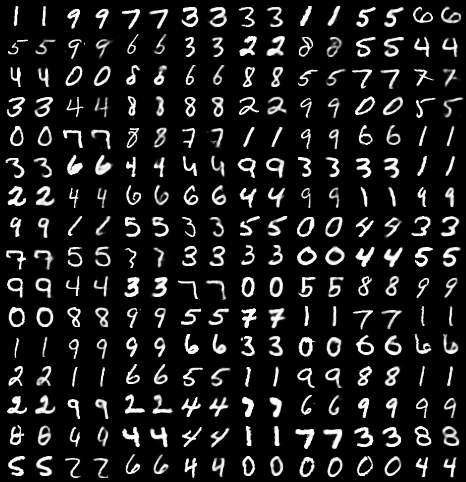 1 1 9 9 7 7 3 3 3 3 1 1 5 5 6 6
5 5 9 9 6 6 3 3 2 2 8 8 5 5 4 4
4 4 0 0 8 8 6 6 8 8 5 5 7 7 7 7
3 3 4 4 8 8 8 8 2 2 9 9 0 0 5 5
0 0 7 7 8 8 7 7 1 1 9 9 6 6 1 1
3 3 6 6 4 4 4 4 9 9 3 3 3 3 1 1
2 2 4 4 6 6 6 6 4 4 9 9 1 1 9 9
9 9 1 1 5 5 3 3 5 5 0 0 4 4 3 3
7 7 5 5 3 3 3 3 3 3 0 0 4 4 5 5
9 9 4 4 3 3 7 7 0 0 5 5 8 8 9 9
0 0 8 8 9 9 5 5 7 7 1 1 7 7 1 1
1 1 9 9 9 9 6 6 3 3 0 0 6 6 6 6
2 2 1 1 6 6 5 5 1 1 9 9 8 8 1 1
2 2 9 9 2 2 4 4 7 7 6 6 9 9 9 9
8 8 9 9 4 4 4 4 1 1 7 7 3 3 8 8
5 5 2 2 6 6 4 4 0 0 0 0 0 0 4 4